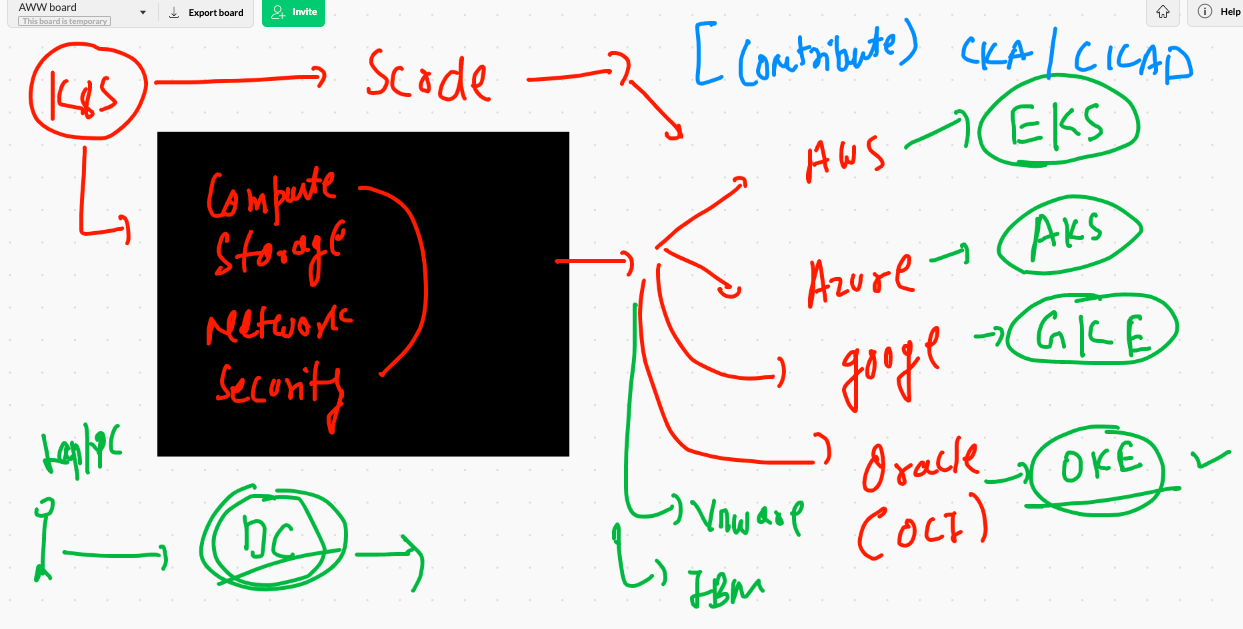 AWW board
This board is temporary
Export board
Invite
Help
[ (contribute) CKA / CKAD
K8S
Scode
AWS
EKS
Compute
Storage
Network
Security
Azure
AKS
googl
GKE
Oracle
(OCI)
OKE
DC
Vmware
IBM